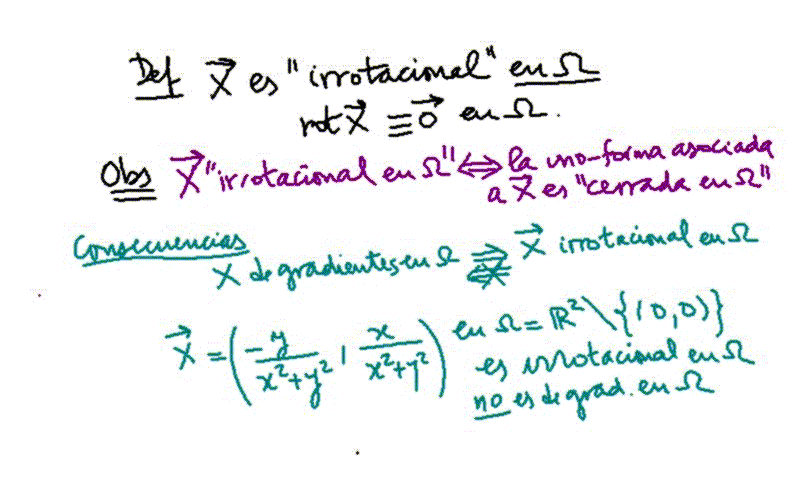 Def X⃗ es "irrotacional" en Ω
rot X⃗ ≡ 0⃗ en Ω.
Obs X⃗ "irrotacional en Ω" ⟺ la uno-forma asociada
a X⃗ es "cerrada en Ω"
Consecuencias
X de gradientes en Ω ⇒ X⃗ irrotacional en Ω
⇍
X⃗ = (-y/(x²+y²), x/(x²+y²)) en Ω = ℝ² \ {(0,0)}
es irrotacional en Ω
no es de grad. en Ω